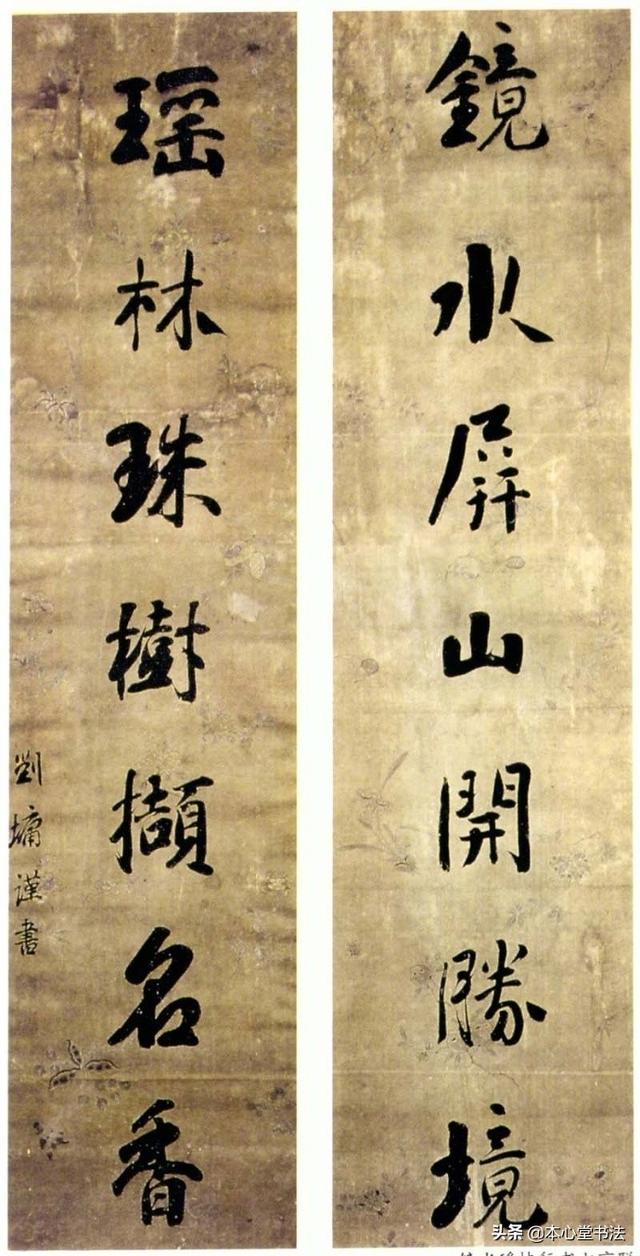 鏡水屏山開勝境
瑶林珠樹擷名香
劉墉謹書
头条 @本心堂书法